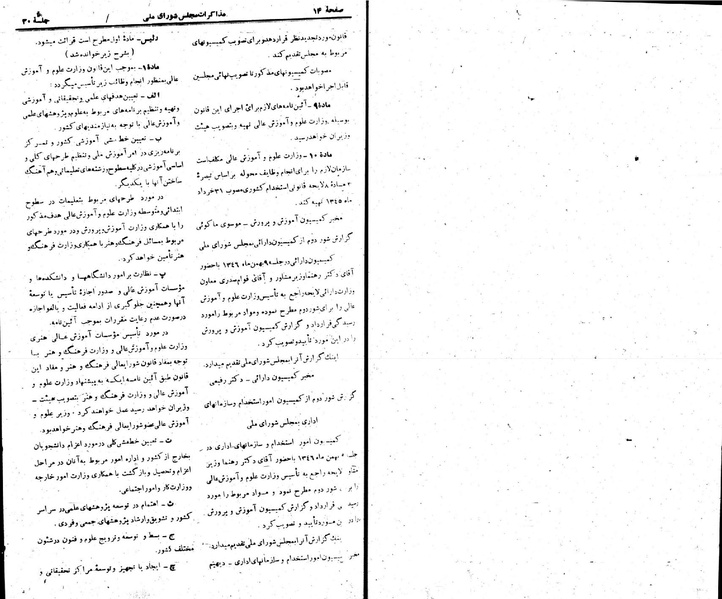 صفحهٔ ۱۴
مذاکرات مجلس شورای ملی
جلسهٔ ۳۰
قانون مورد تجدید نظر قرار دهد و برای تصویب کمیسیونهای
مربوط به مجلس تقدیم کند.
مصوبات کمیسیونهای مذکور تا تصویب نهائی مجلسین
قابل اجرا خواهد بود.
مادهٔ ۹ـ آئین‌نامه‌های لازم برای اجرای این قانون
بوسیله وزارت علوم و آموزش عالی تهیه و بتصویب هیئت
وزیران خواهد رسید.
مادهٔ ۱۰ـ وزارت علوم و آموزش عالی مکلف است
سازمان لازم را برای انجام وظایف محوله براساس تبصرهٔ
مادهٔ ۸ لایحه قانونی استخدام کشوری مصوب ۳۱ خرداد
ماه ۱۳۴۵ تهیه کند.
مخبر کمیسیون آموزش و پرورش ـ موسوی ماکوئی
گزارش شور دوم از کمیسیون دارائی بمجلس شورای ملی
کمیسیون دارائی در جلسه ۹ بهمن ماه ۱۳۴۶ با حضور
آقای دکتر رهنما وزیر مشاور و آقای قوام صدری معاون
وزارت دارائی لایحه راجع به تأسیس وزارت علوم و آموزش
عالی را برای شور دوم مطرح نموده و مواد مربوط را مورد
رسیدگی قرارداد و گزارش کمیسیون آموزش و پرورش
را در این مورد تأیید و تصویب کرد.
اینک گزارش آنرا بمجلس شورای ملی تقدیم میدارد.
مخبر کمیسیون دارائی ـ دکتر رفیعی
گزارش شور دوم از کمیسیون امور استخدام و سازمانهای
اداری بمجلس شورای ملی
کمیسیون امور استخدام و سازمانهای اداری در
بهمن ماه ۱۳۴۶ با حضور آقای دکتر رهنما وزیر
لایحه راجع به تأسیس وزارت علوم و آموزش عالی
شور دوم مطرح نمود و مواد مربوط را مورد
قرارداد و گزارش کمیسیون آموزش و پرورش
مورد تأیید و تصویب کرد.
اینک گزارش آنرا بمجلس شورای ملی تقدیم میدارد.
مخبر کمیسیون امور استخدام و سازمانهای اداری ـ دیهیم
رئیس ـ مادهٔ اول مطرح است قرائت میشود.
(بشرح زیر خوانده شد)
مادهٔ ۱ـ بموجب این قانون وزارت علوم و آموزش
عالی بمنظور انجام وظائف زیر تأسیس میگردد:
الف ـ تعیین هدفهای علمی و تحقیقاتی و آموزشی
و تهیه و تنظیم برنامه‌های مربوط به علوم و پژوهشهای علمی
و آموزش عالی با توجه به نیازمندیهای کشور.
ب ـ تعیین خط مشی آموزشی کشور و تمرکز
برنامه‌ریزی در امر آموزش ملی و تنظیم طرحهای کلی و
اساسی آموزشی در کلیه سطوح، رشته‌های تعلیماتی و هم‌آهنگ
ساختن آنها با یکدیگر.
در مورد طرحهای مربوط بتعلیمات در سطوح
ابتدائی و متوسطه وزارت علوم و آموزش عالی هدف مذکور
را با همکاری وزارت آموزش و پرورش و در مورد طرحهای
مربوط بمسائل فرهنگ و هنر با همکاری وزارت فرهنگ و
هنر تأمین خواهد کرد.
پ ـ نظارت بر امور دانشگاهها و دانشکده‌ها و
مؤسسات آموزش عالی و صدور اجازهٔ تأسیس یا توسعهٔ
آنها و همچنین جلوگیری از ادامه فعالیت و یا لغو اجازه
در صورت عدم رعایت مقررات بموجب آئین‌نامه.
در مورد تأسیس مؤسسات آموزش عالی هنری
وزارت علوم و آموزش عالی و وزارت فرهنگ و هنر با
توجه بمفاد قانون شورایعالی فرهنگ و هنر و مفاد این
قانون طبق آئین نامه‌ایکه به پیشنهاد وزارت علوم و
آموزش عالی و وزارت فرهنگ و هنر بتصویب هیئت ـ
وزیران خواهد رسید عمل خواهند کرد. وزیر علوم و
آموزش عالی عضو شورایعالی فرهنگ و هنر خواهد بود.
ت ـ تعیین خط مشی کلی در مورد اعزام دانشجویان
بخارج از کشور و اداره امور مربوط به آنان در مراحل
اعزام و تحصیل و بازگشت با همکاری وزارت امور خارجه
و وزارت کار و امور اجتماعی.
ث ـ اهتمام در توسعه پژوهشهای علمی در سراسر
کشور و تشویق و ارشاد پژوهشهای جمعی و فردی.
ج ـ بسط و توسعه و ترویج علوم و فنون در شئون
مختلف کشور.
چ ـ ایجاد یا تجهیز و توسعهٔ مراکز تحقیقاتی و